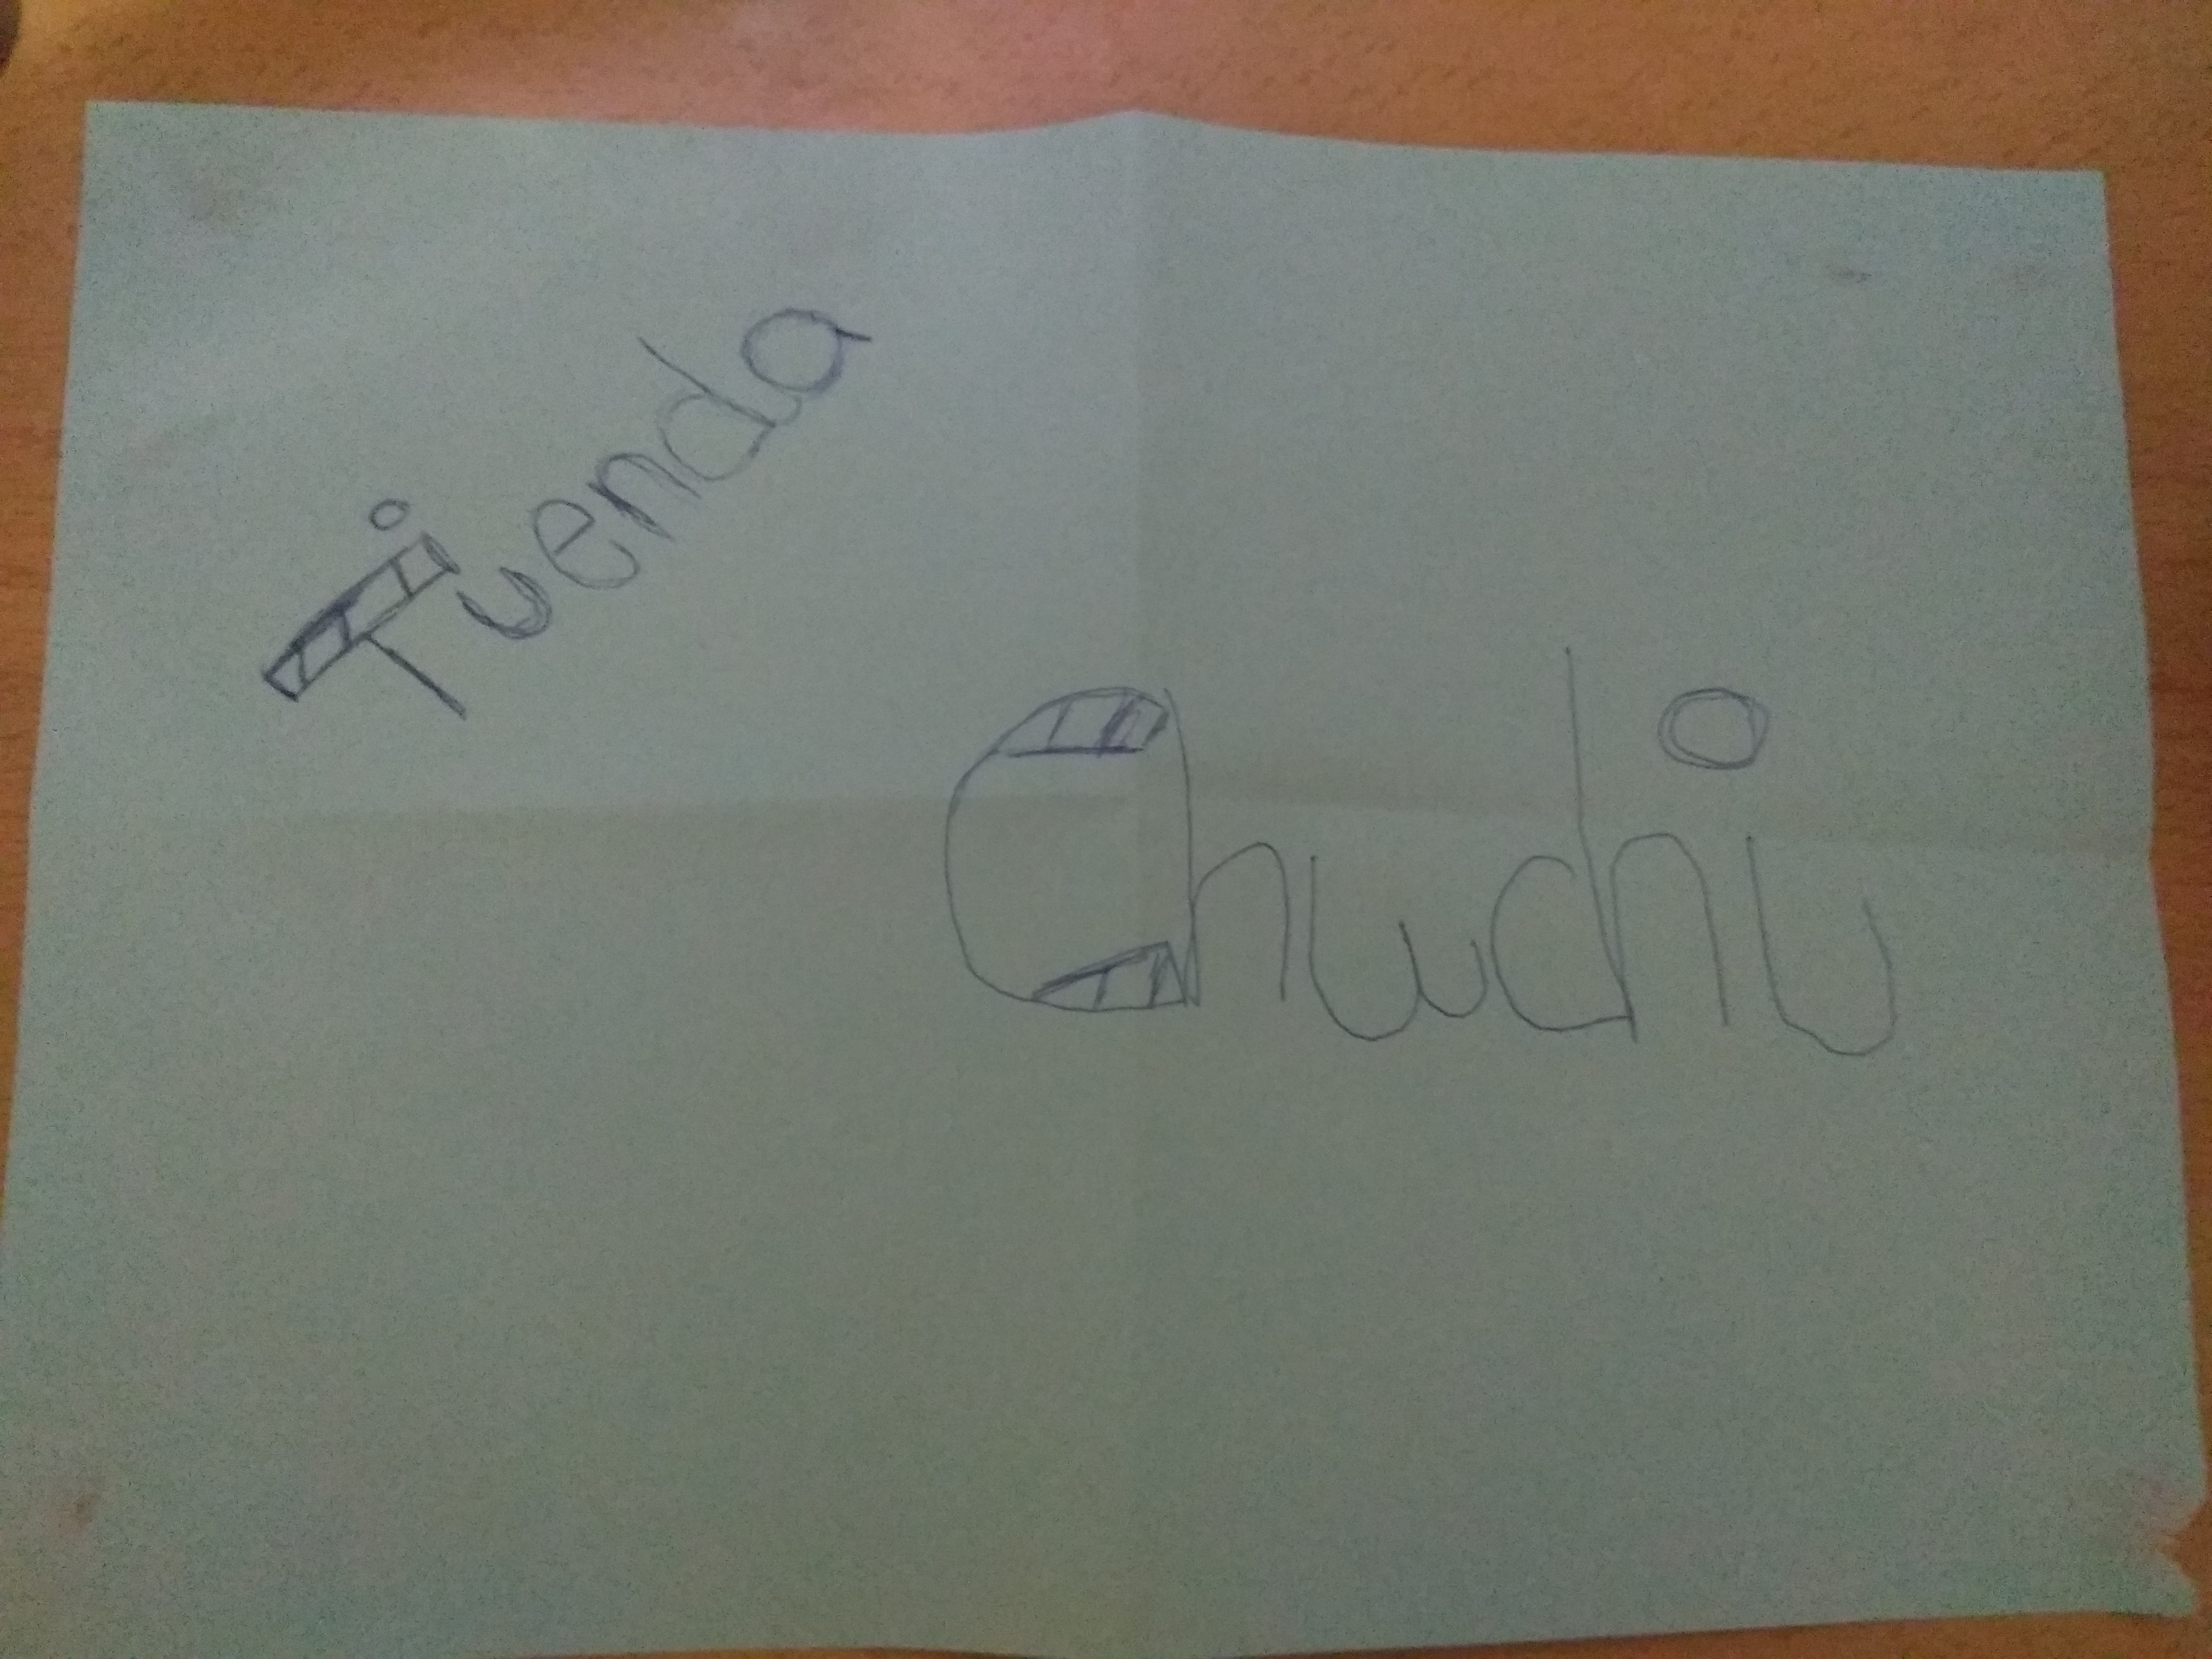 Tienda
Chuchi